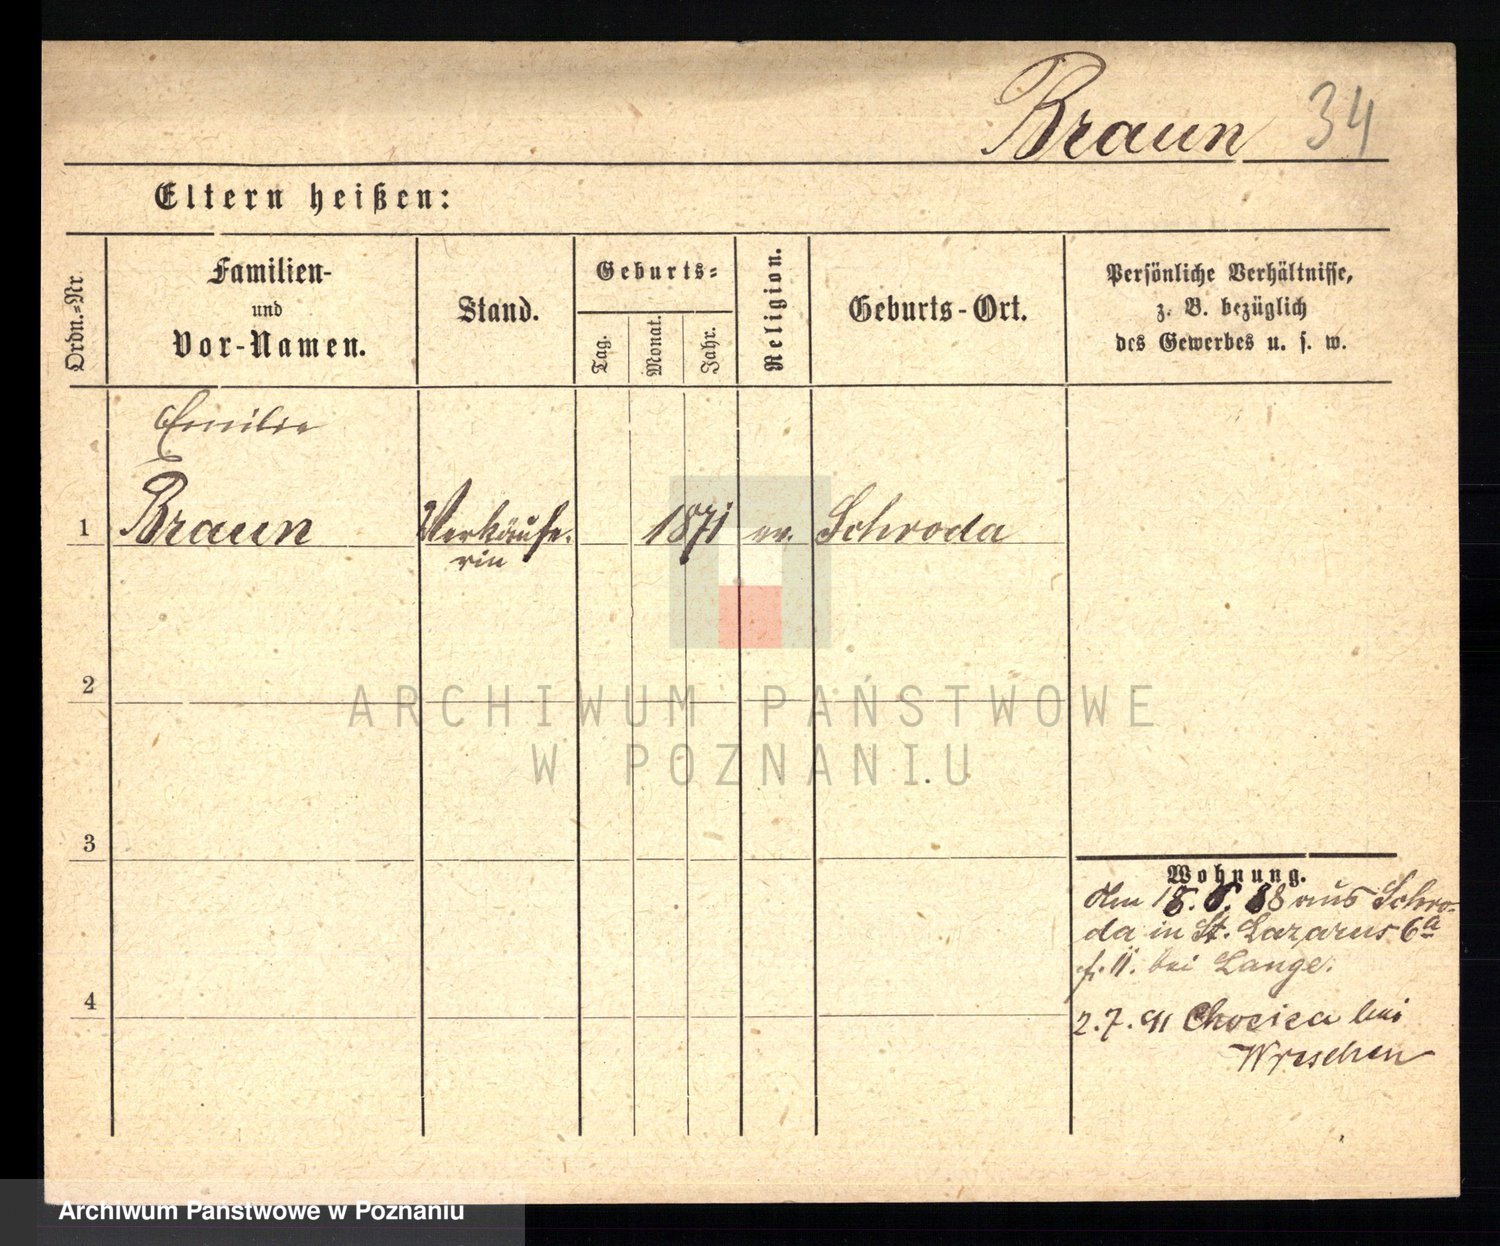 Braun 34
Eltern heißen:
Ordn.-Nr
Familien-
und
Vor-Namen.
Stand.
Geburts-
Tag.
Monat.
Jahr.
Religion.
Geburts-Ort.
Persönliche Verhältnisse,
z. B. bezüglich
des Gewerbes u. s. w.
Emilie
1 Braun Verkäufe- 1871 ev. Schroda
rin
2
3
4
Wohnung.
Am 18. 6. 88 aus Schro-
da in St. Lazarus 6a
f. II. bei Lange.
2. 7. 91 Chocicza bei
Wreschen
ARCHIWUM PAŃSTWOWE
W POZNANIU
Archiwum Państwowe w Poznaniu